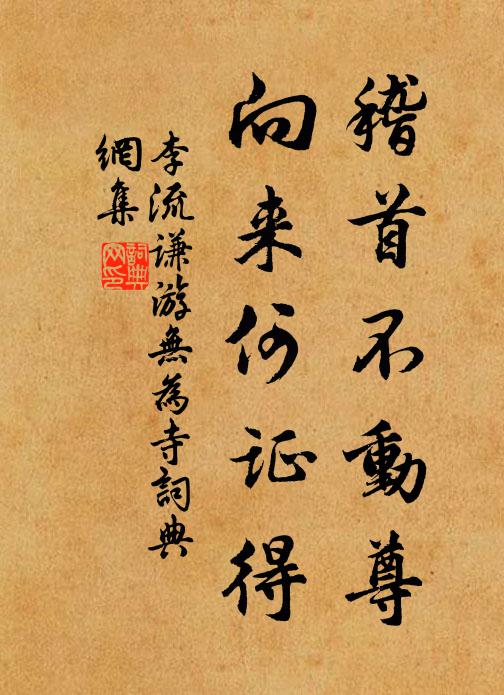 稽首不動尊
向来何证得
李流谦游無為寺詞典
網集
詞典
网印